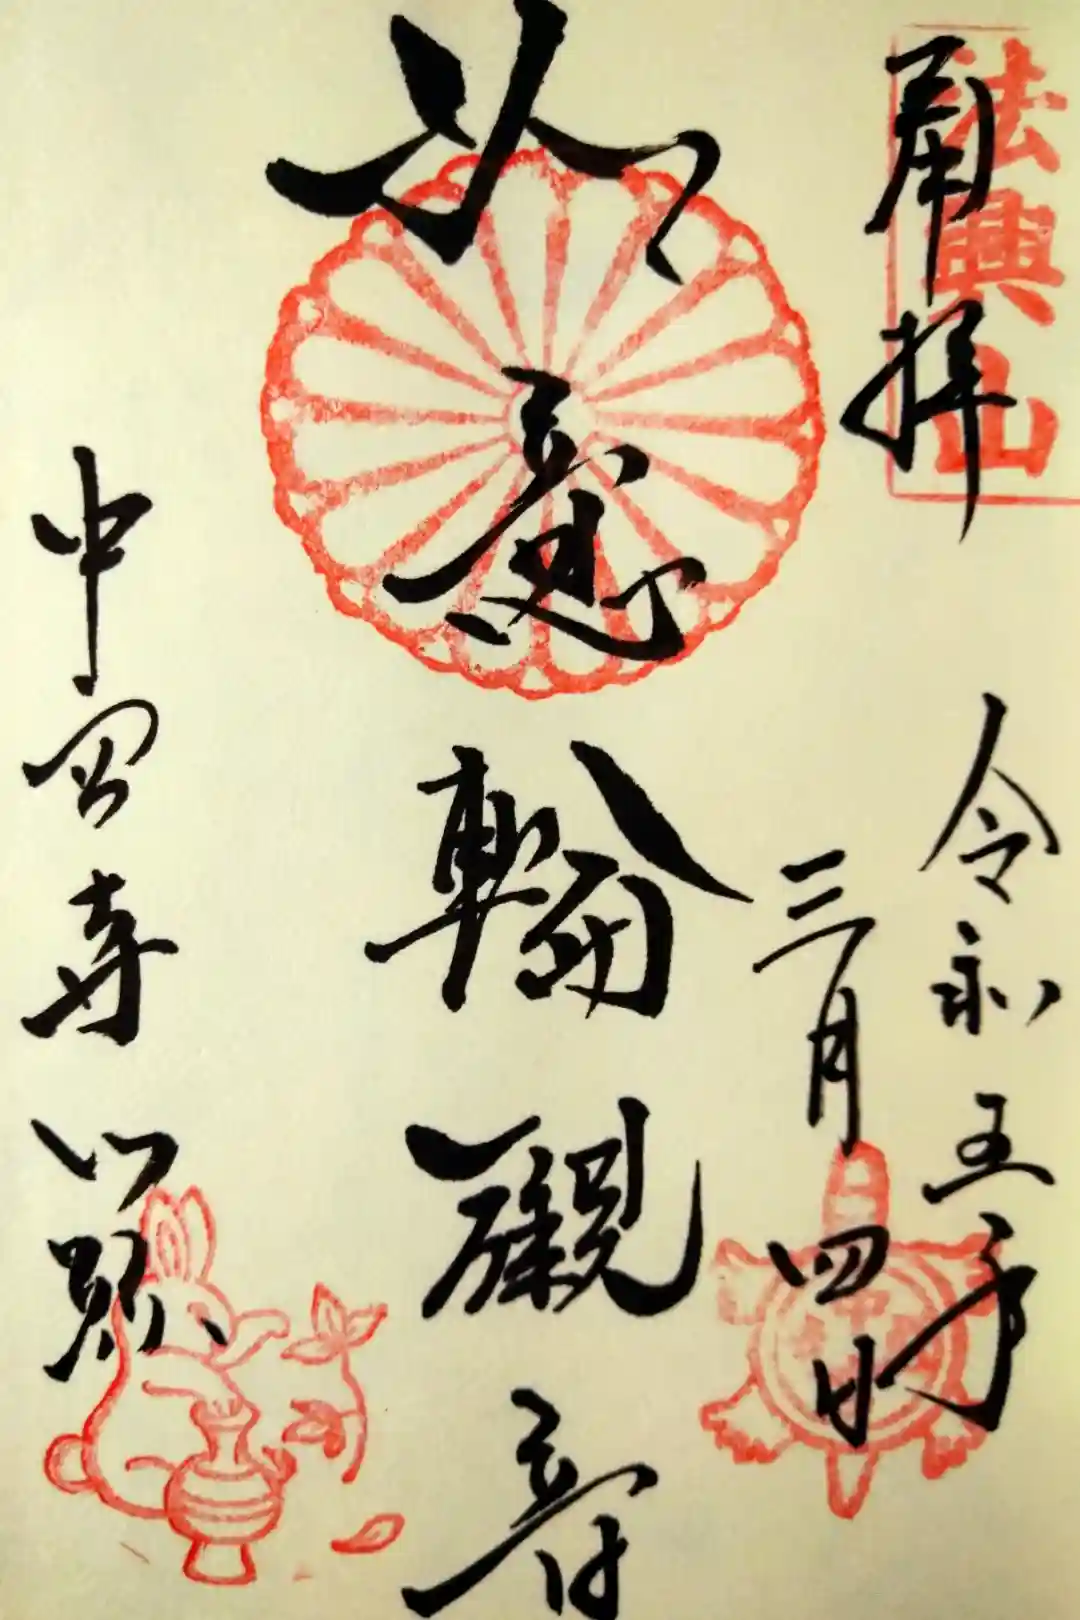 奉拝
法興山
令和五年
三月四日
如意輪観音
中宮寺門跡